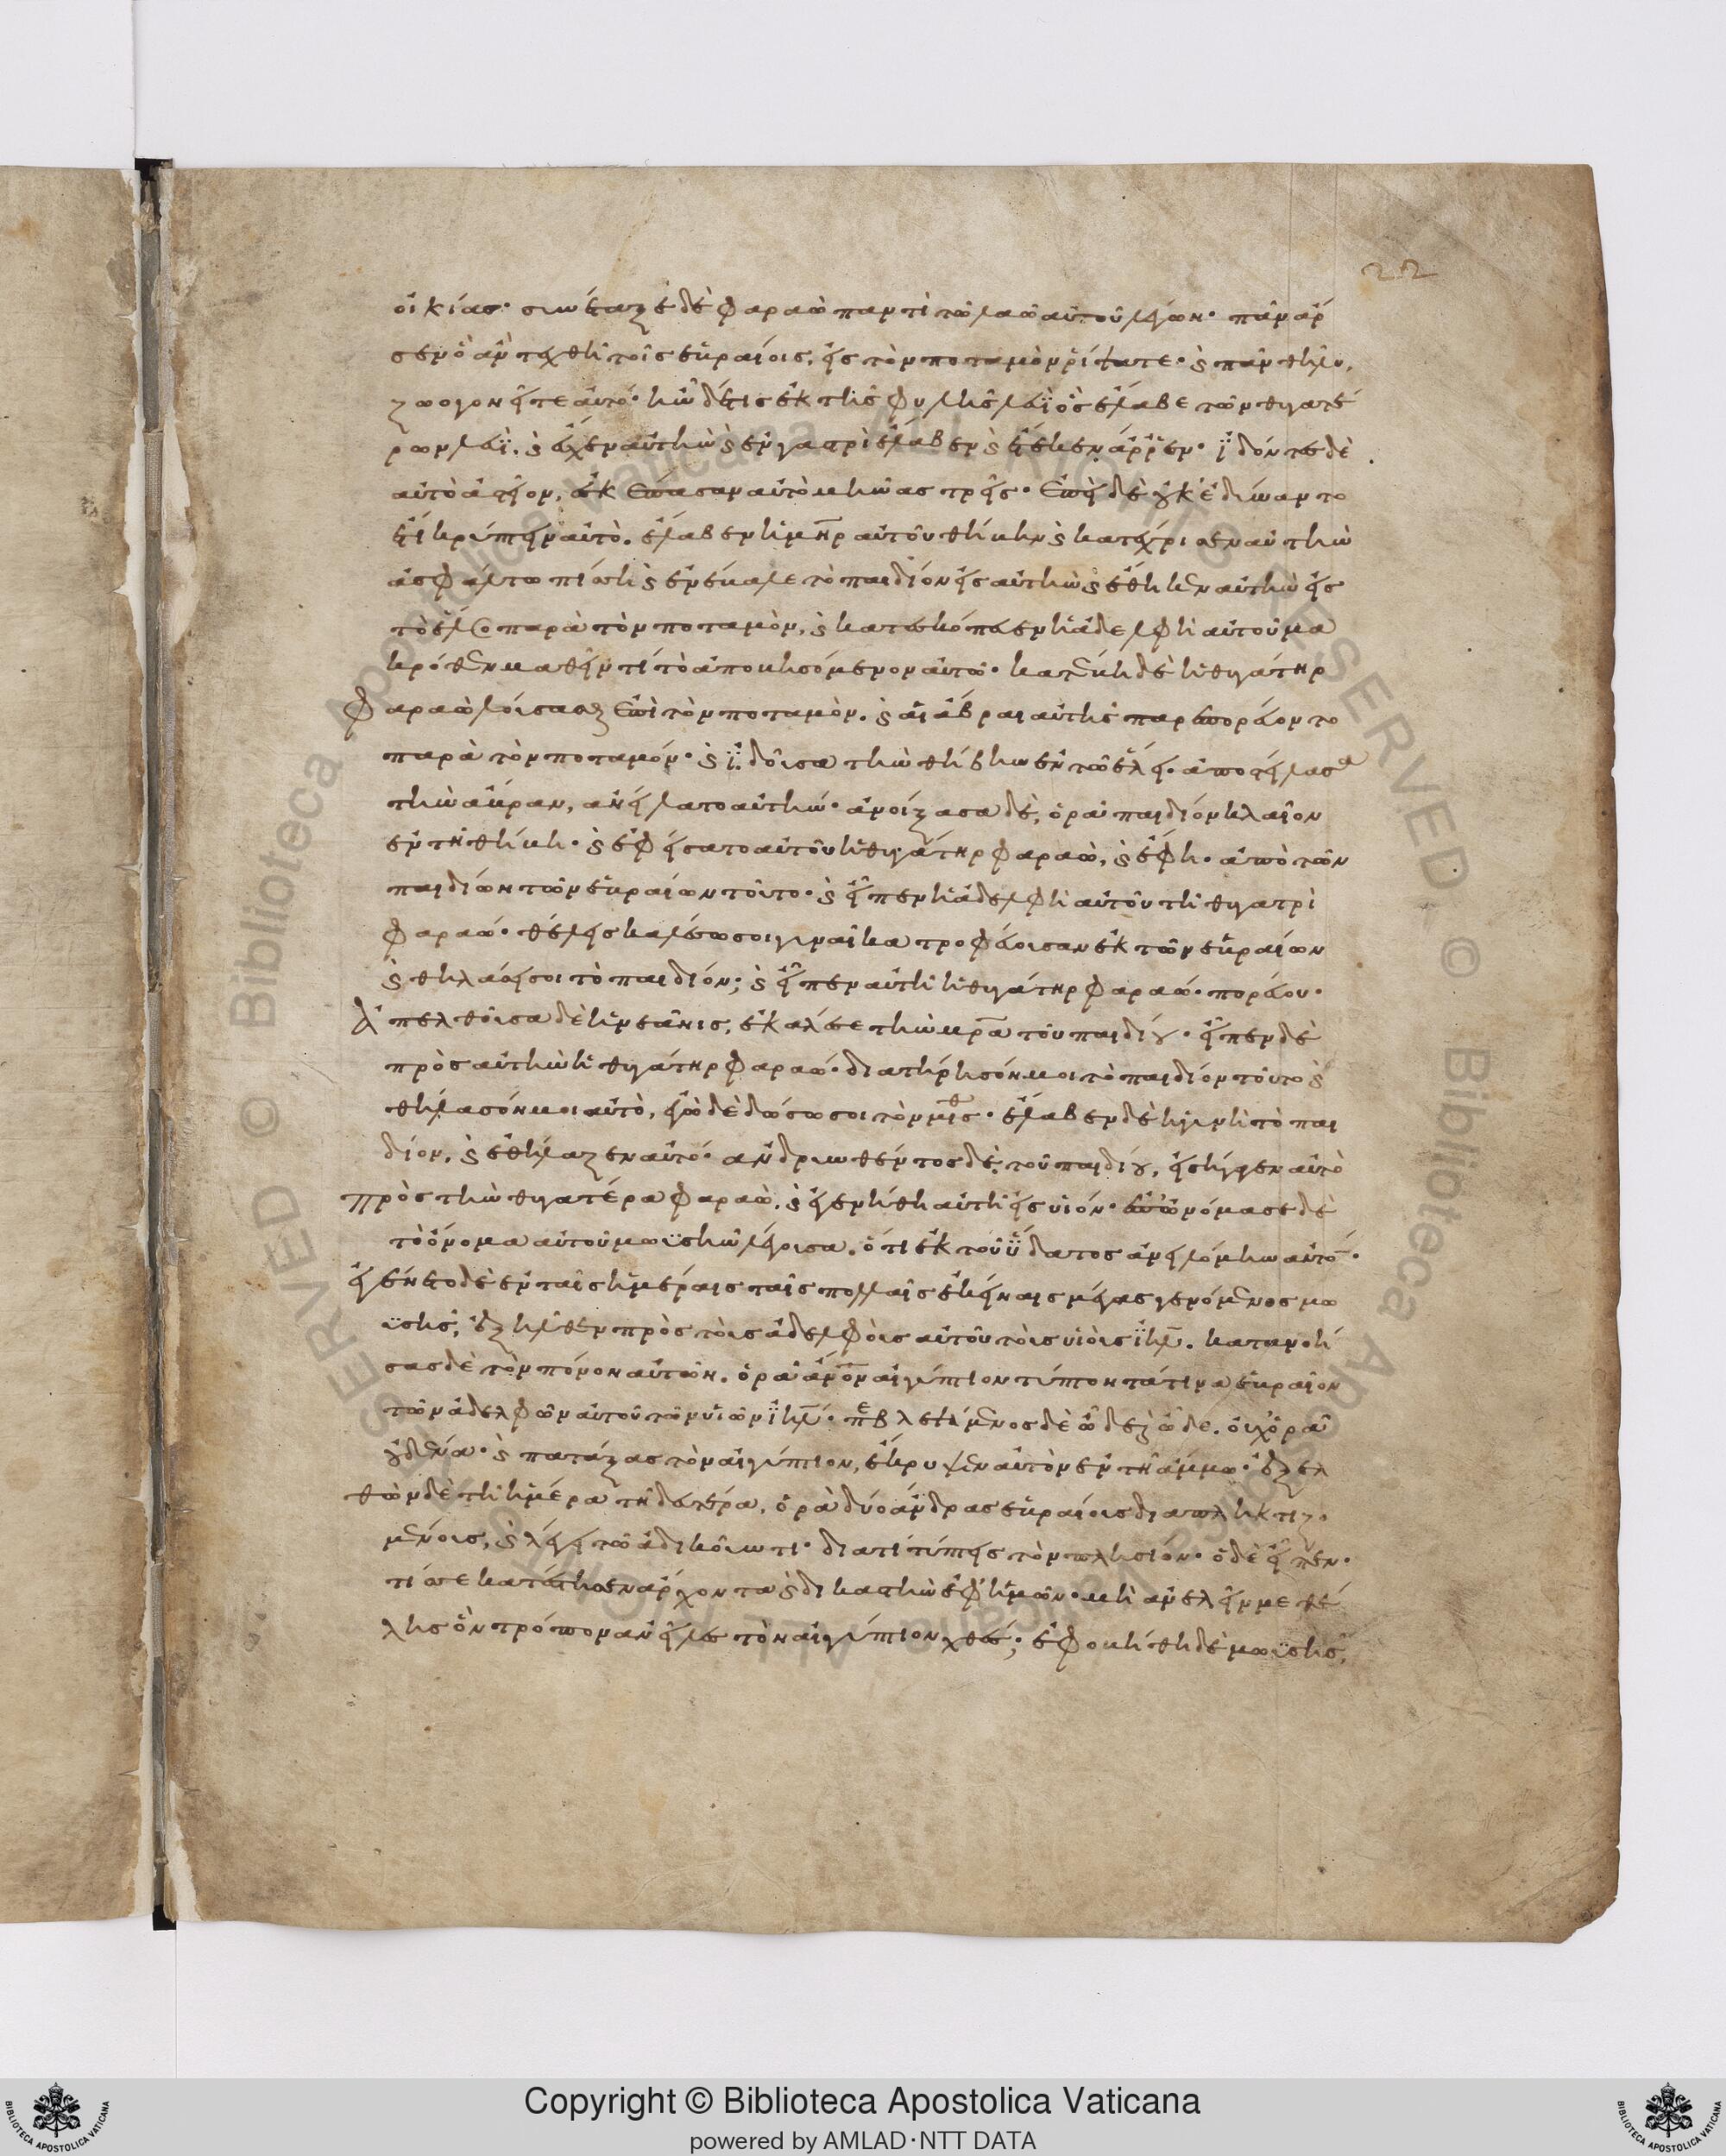 22
οἰκίασ· συνέταξε δὲ φαραὼ παντὶ τῶ λαῶ αὐτοῦ λέγων· πᾶν ἄρ
σεν ὃ ἂν τεχθῆ τοῖς ἑβραίοις, εἰς τὸν ποταμὸν ῥίψατε· ϗ πᾶν θῆλυ,
ζωογονεῖτε αὐτό· ἦν δέ τις ἐκ τῆς φυλῆς λευῒ ὃς ἔλαβε τῶν θυγατέ
ρων λευῒ. ϗ ἔσχεν αὐτὴν ϗ ἐν γαστρὶ ἔλαβεν ϗ ἔτεκεν ἄρρεν· ἰδόντες δὲ
αὐτὸ ἀστεῖον, ἐσκέπασαν αὐτὸ μῆνας τρεῖς· ἐπεὶ δὲ οὐκ ἐδύναντο
ἔτι κρύπτειν αὐτὸ. ἔλαβεν ἡ μηρ αὐτοῦ θήκην ϗ κατέχρισεν αὐτὴν
ἀσφαλτοπίσση ϗ ἐνέβαλε τὸ παιδίον εἰς αὐτὴν ϗ ἔθηκεν αὐτὴν εἰς
τὸ ἕλος παρὰ τὸν ποταμὸν, ϗ κατεσκόπευεν ἡ ἀδελφὴ αὐτοῦ μα
κρόθεν μαθεῖν τί τὸ ἀποβησόμενον αὐτῶ· κατέβη δὲ ἡ θυγάτηρ
φαραὼ λούσασθαι ἐπὶ τὸν ποταμὸν. ϗ αἱ ἅβραι αὐτῆς παρεπορεύοντο
παρὰ τὸν ποταμόν· ϗ ἰδοῦσα τὴν θίβην ἐν τῶ ἕλει. ἀποστείλασα
τὴν ἅβραν, ἀνείλατο αὐτήν· ἀνοίξασα δὲ, ὁρᾶ παιδίον κλαῖον
ἐν τῆ θήβη· ϗ ἐφείσατο αὐτοῦ ἡ θυγάτηρ φαραὼ, ϗ ἔφη· ἀπὸ τῶν
παιδίων τῶν ἑβραίων τοῦτο· ϗ εἶπεν ἡ ἀδελφὴ αὐτοῦ τῆ θυγατρὶ
φαραώ· θέλεις καλέσω σοι γυναῖκα τροφεύουσαν ἐκ τῶν ἑβραίων
ϗ θηλάσει σοι τὸ παιδίον; ϗ εἶπεν αὐτῆ ἡ θυγάτηρ φαραώ· πορεύου·
Ἀπελθοῦσα δὲ ἡ νεᾶνις, ἐκάλεσε τὴν μρα τοῦ παιδίου· εἶπεν δὲ
πρὸς αὐτὴν ἡ θυγάτηρ φαραώ· διατήρησόν μοι τὸ παιδίον τοῦτο ϗ
θήλασόν μοι αὐτὸ, ἐγὼ δὲ δώσω σοι τὸν μισθ· ἔλαβεν δὲ ἡ γυνὴ τὸ παι
δίον, ϗ ἐθήλαζεν αὐτό· ἀνδρυνθέντος δὲ τοῦ παιδίου, εἰσήγαγεν αὐτὸ
πρὸς τὴν θυγατέρα φαραὼ, ϗ ἐγενήθη αὐτῆ εἰς υἱόν· ἐπωνόμασε δὲ
τὸ ὄνομα αὐτοῦ μωϋσῆν λέγουσα. ὅτι ἐκ τοῦ ὕδατος ἀνειλόμην αὐτό·
ἐγένετο δὲ ἐν ταῖς ἡμέραις ταῖς πολλαῖς ἐκείναις μέγας γενόμενος μω
ϋσῆς, ἐξῆλθεν πρὸς τοὺς ἀδελφοὺς αὐτοῦ τοὺς υἱοὺς ιηλ. κατανοή
σας δὲ τὸν πόνον αὐτῶν. ὁρᾶ ἄνον αἰγύπτιον τύπτοντά τινα ἑβραῖον
τῶν ἀδελφῶν αὐτοῦ τῶν υἱῶν ιηλ· περιβλεψάμενος δὲ ὧδε ϗ ὧδε. οὐχ ὁρᾶ
οὐδένα· ϗ πατάξας τὸν αἰγύπτιον, ἔκρυψεν αὐτὸν ἐν τῆ ἄμμω· ἐξελ
θὼν δὲ τῆ ἡμέρα τῆ δευτέρα, ὁρᾶ δύο ἄνδρας ἑβραίους διαπληκτιζο
μένους, ϗ λέγει τῶ ἀδικοῦντι· διατί τύπτεις τὸν πλησίον· ὁ δὲ εἶπεν·
τίς σε κατέστησεν ἄρχοντα ϗ δικαστὴν ἐφ' ἡμῶν· μὴ ἀνελεῖν με θέ
λης ὃν τρόπον ἀνεῖλες τὸν αἰγύπτιον χθές; ἐφοβήθη δὲ μωϋσῆς,
© Biblioteca Apostolica Vaticana ALL RIGHTS RESERVED © Biblioteca Apostolica Vaticana ALL RIGHTS RESERVED
Copyright © Biblioteca Apostolica Vaticana
powered by AMLAD·NTT DATA
BIBLIOTECA APOSTOLICA VATICANA
BIBLIOTECA APOSTOLICA VATICANA